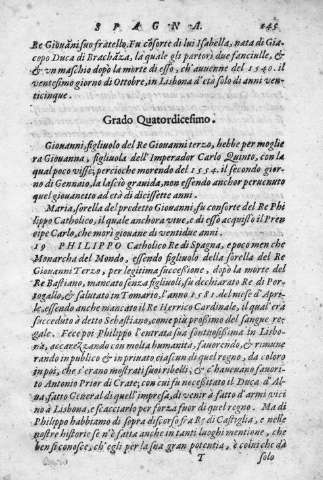 SPAGNA. 245
Re Giouãni suo fratello. Fu cõsorte di lui Isabella, nata di Gia-
copo Duca di Braɢhãza, la quale gli partorì due fanciulle, &
& vn maschio dopò la morte di esso, ch'auuenne del 1540. il
ventesimo giorno di Ottobre, in Lisbona d'età solo di anni ven-
ticinque.
Grado Quatordicesimo.
Giouanni, figliuolo del Re Giouanni terzo, hebbe per moglie
ra Giouanna, figliuola dell'Imperador Carlo Quinto, con la
qual poco visse; percioche morendo del 1554. il secondo gior-
no di Gennaio, la lasciò grauida, non essendo anchor peruenuto
quel giouanetto ad età di dicissette anni.
Maria, sorella del predetto Giouanni, fu consorte del Re Phi
lippo Catholico, il quale anchora viue, e di esso acquistò il Pren
cipe Carlo, che morì giouane di ventidue anni.
19 PHILIPPO Catholico Re di Spagna, e poco men che
Monarcha del Mondo, essendo figliuolo della sorella del Re
Giouanni Terzo, per legitima successione, dopò la morte del
Re Bastiano, mancato senza figliuoli, fu dechiarato Re di Por-
togallo, & salutato in Tomario, l'anno 1581. del mese d'Apri-
le, essendo anche mancato il Re Herrico Cardinale, il qual era
succeduto à detto Sebastiano, come più prossimo del sangue re-
gale. Fece poi Philippo l'entrata sua sontuosissima in Lisbo-
na, accarezzando con molta humanità, fauorendo, & rimune
rando in publico & in priuato ciascun di quel regno, da coloro
in poi, che s'erano mostrati suoi ribelli, & c'haueuano fauori-
to Antonio Prior di Crate; con cui fu necessitato il Duca d'Al-
ua, fatto General di quell'impresa, di venir à fatto d'armi vici
no à Lisbona, e scacciarlo per forza fuor di quel regno. Ma di
Philippo habbiamo di sopra discorso fra Rè di Castiglia, e nelle
nostre historie se n'è fatta anche in tanti luoghi mentione, che
ben si conosce, ch'egli per la sua gran potentia, è
T solo